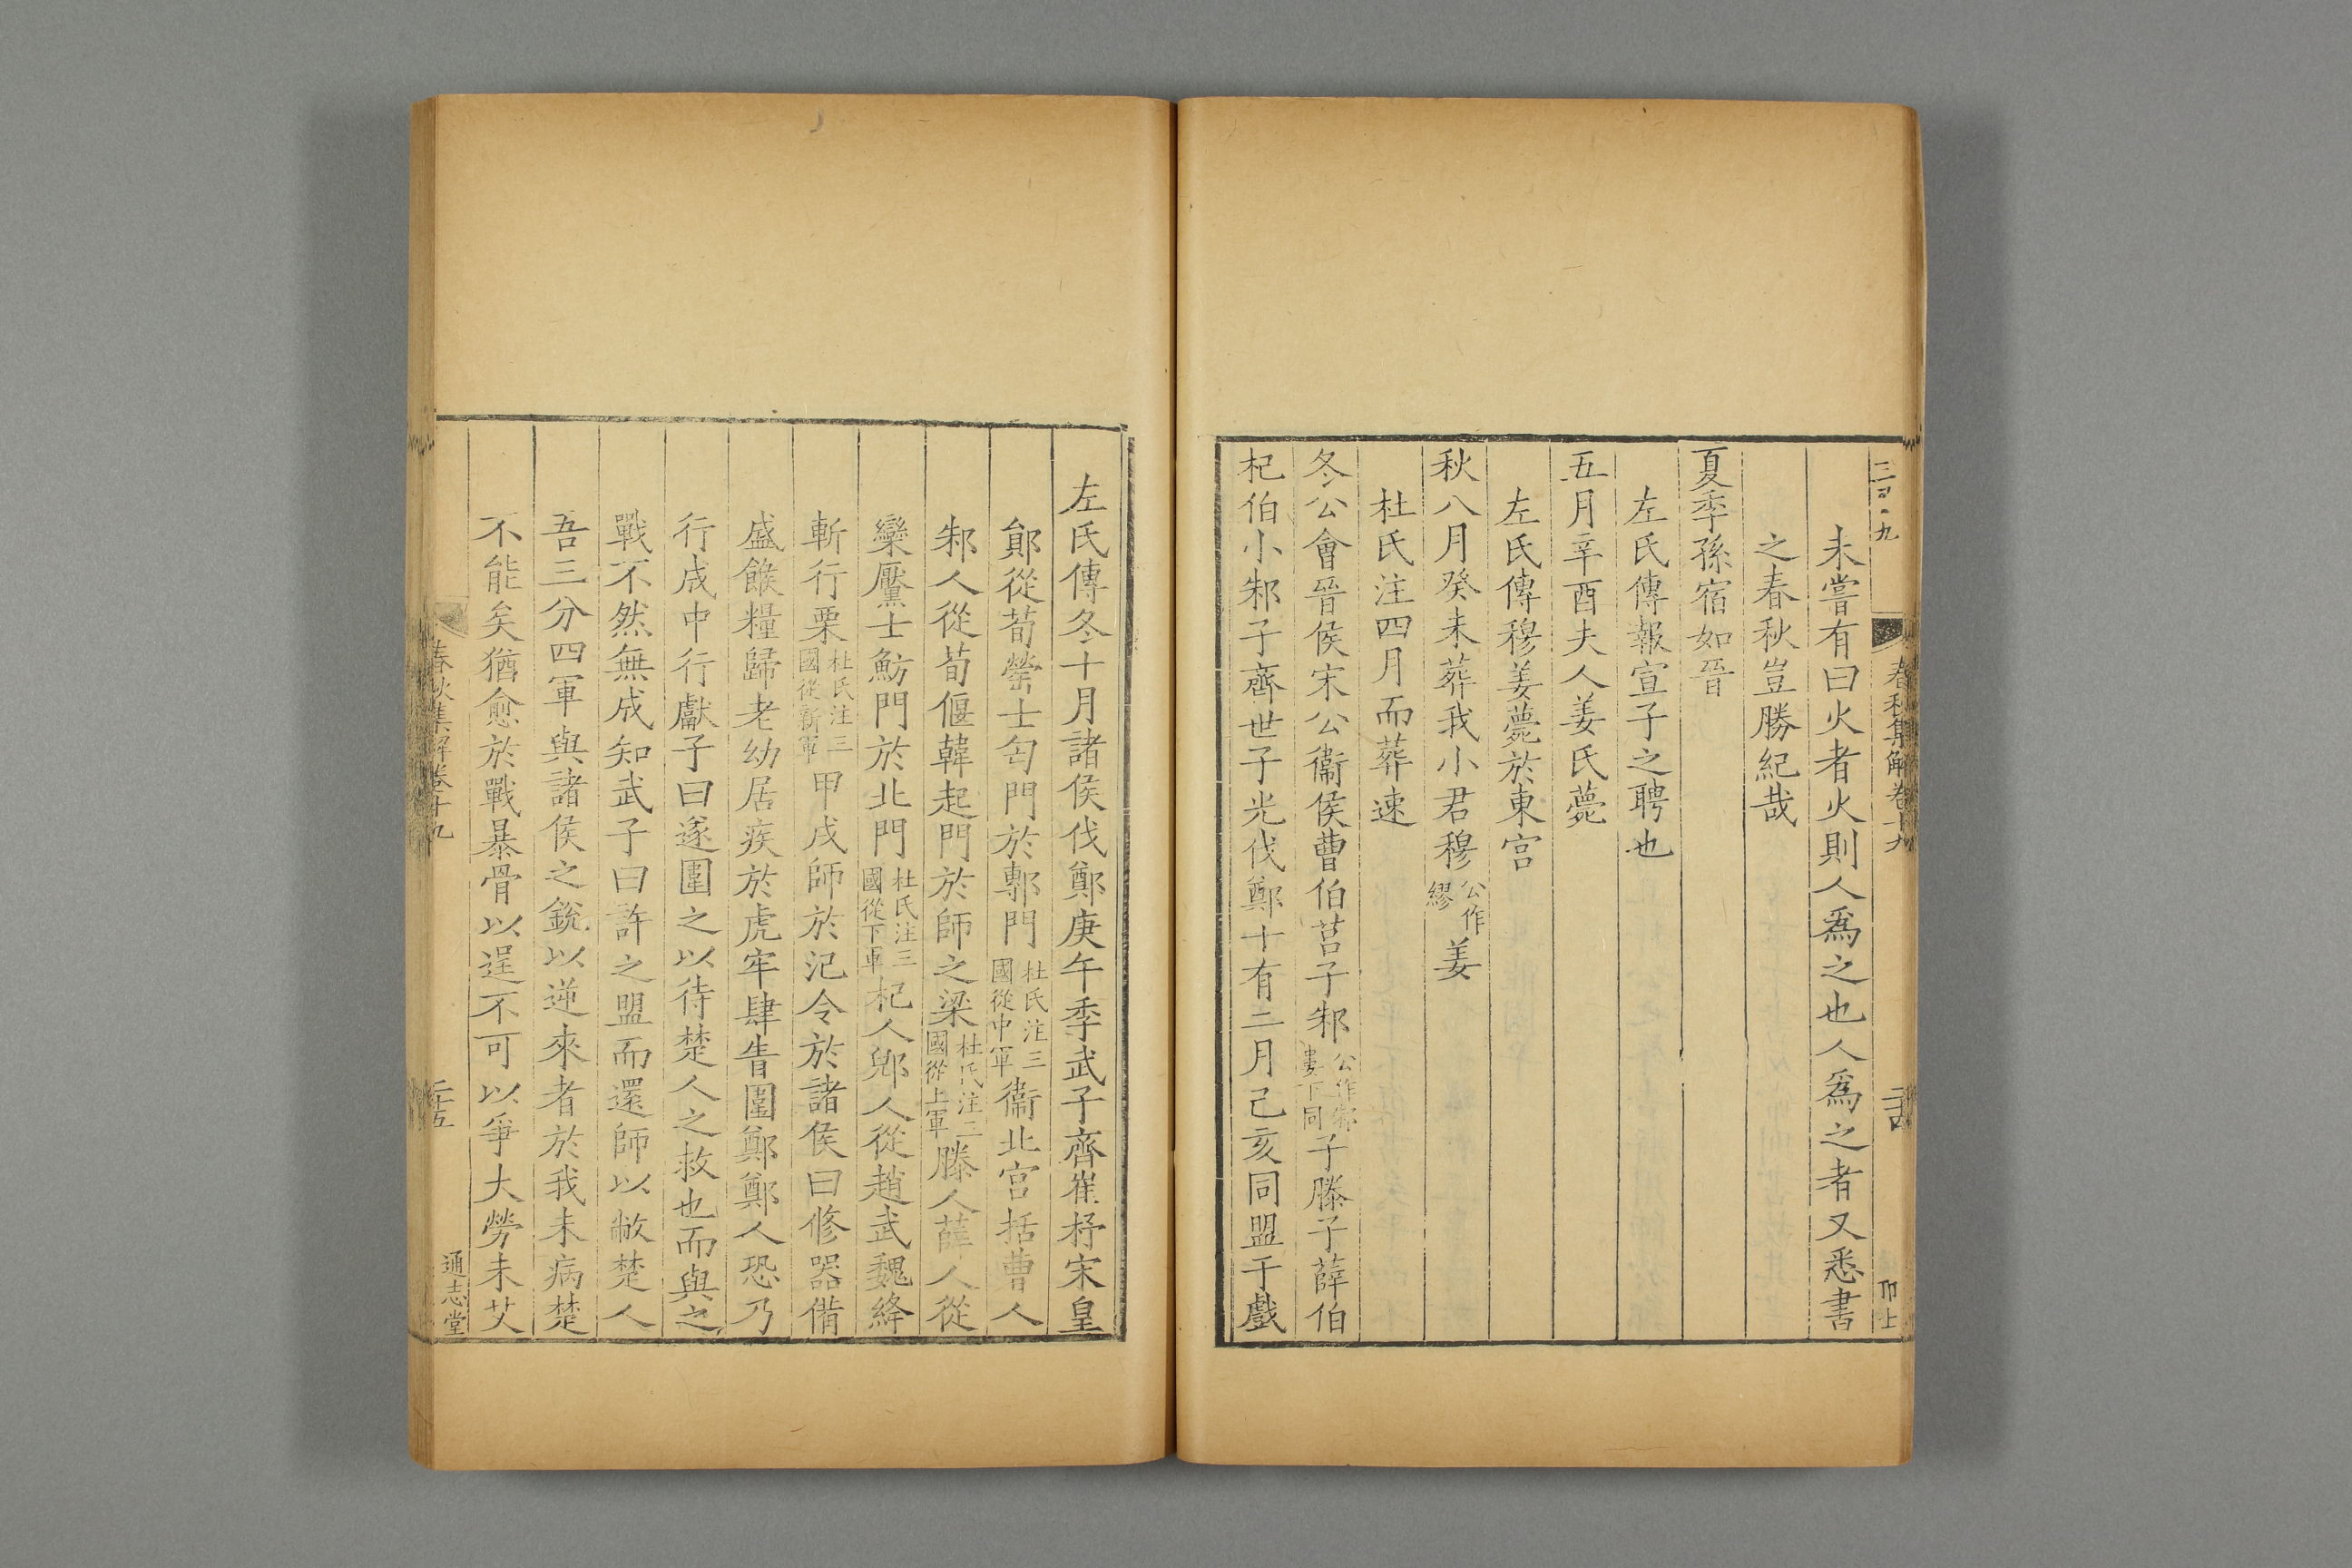 未嘗有曰火者火則人爲之也人爲之者又悉書
之春秋豈勝紀哉
夏季孫宿如晉
左氏傳報宣子之聘也
五月辛酉夫人姜氏薨
左氏傳穆姜薨於東宮
秋八月癸未葬我小君穆公作繆姜
杜氏注四月而葬速
冬公會晉侯宋公衞侯曹伯莒子邾公作邾婁下同子滕子薛伯
杞伯小邾子齊世子光伐鄭十有二月己亥同盟于戲
春秋集解卷十九
二十四
左氏傳冬十月諸侯伐鄭庚午季武子齊崔杼宋皇
鄖從荀罃士匄門於鄟門杜氏注三國從中軍衞北宮括曹人
邾人從荀偃韓起門於師之梁杜氏注二國從上軍滕人薛人從
欒黶士魴門於北門杜氏注三國從下軍杞人郳人從趙武魏絳
斬行栗杜氏注三國從新軍甲戌師於氾令於諸侯曰修器備
盛餱糧歸老幼居疾於虎牢肆眚圍鄭鄭人恐乃
行成中行獻子曰遂圍之以待楚人之救也而與之
戰不然無成知武子曰許之盟而還師以敝楚人
吾三分四軍與諸侯之銳以逆來者於我未病楚
不能矣猶愈於戰暴骨以逞不可以爭大勞未艾
春秋集解卷十九
二十五
通志堂